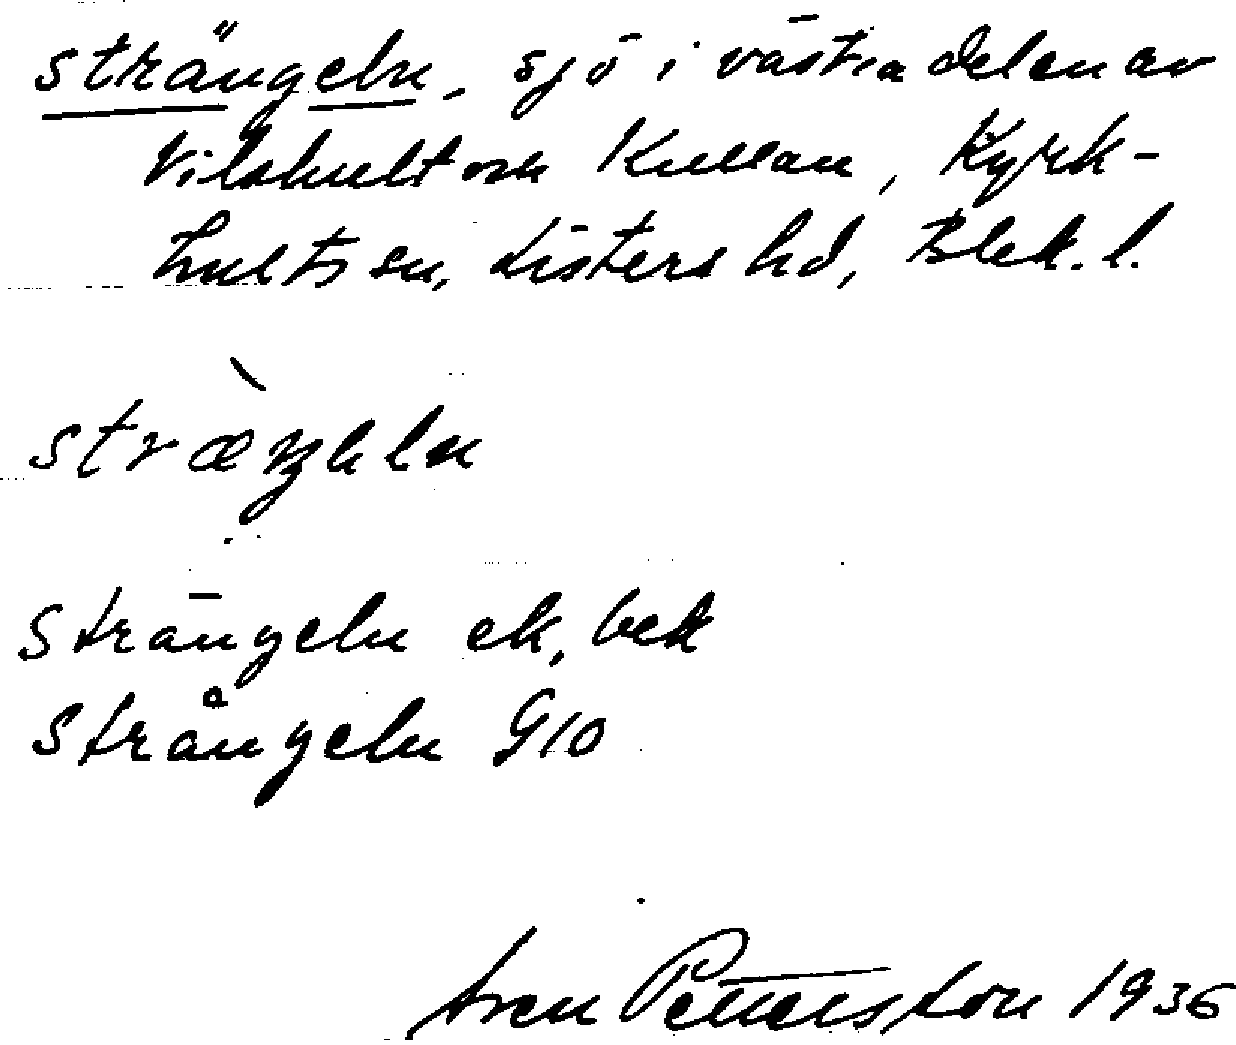 Strängeln, sjö i västra delen av
Vilshult och Kullan, Kyrk-
hults sn, Listers hd, Blek. l.
stræ̀ŋəln
Strängeln ek, bek
Strångeln G10
Sven Pettersson 1936